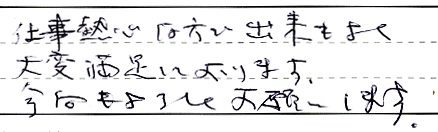 仕事熱心な方で出来もよく
大変満足しております。
今后もよろしくお願いします。